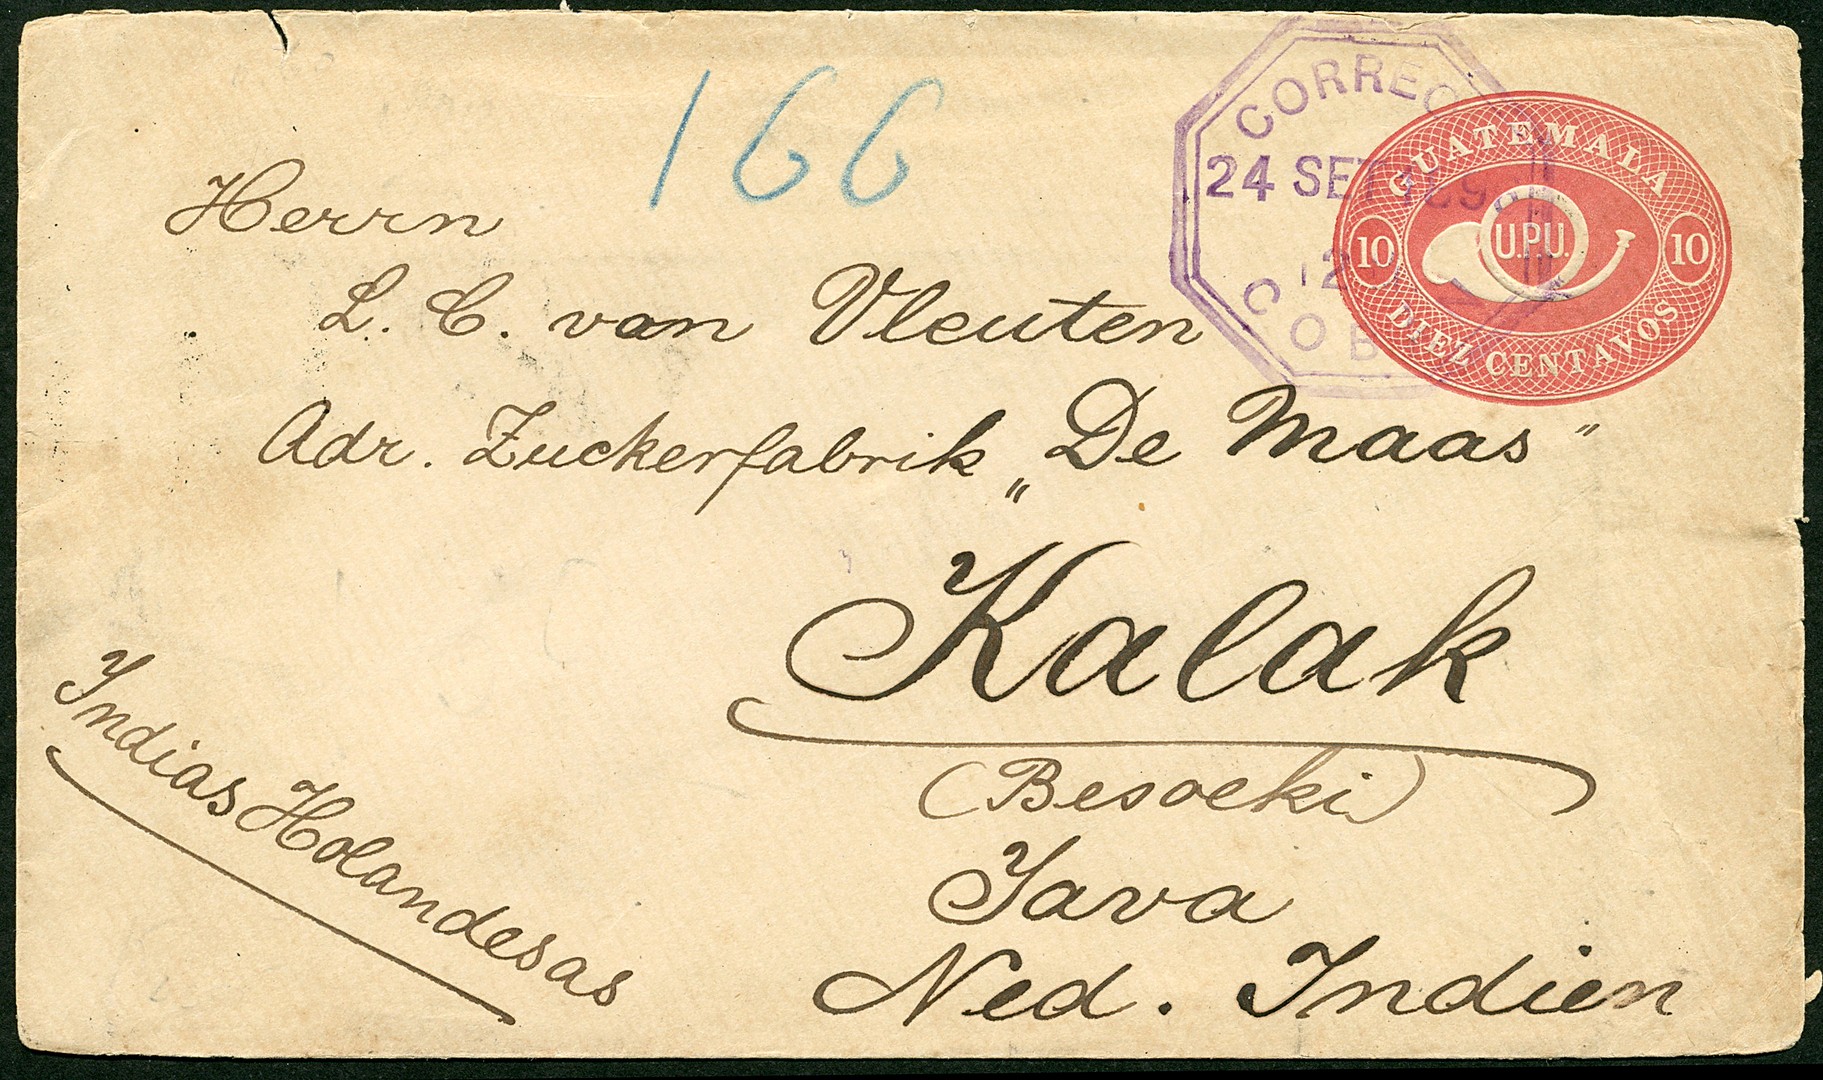 166
CORREOS
24 SET 189
12
COBAN
GUATEMALA
10 U.P.U. 10
DIEZ CENTAVOS
Herrn
L. C. van Vleuten
Adr. Zuckerfabrik „De Maas"
Kalak
(Besoeki)
Java
Ned. Indien
Indias Holandesas